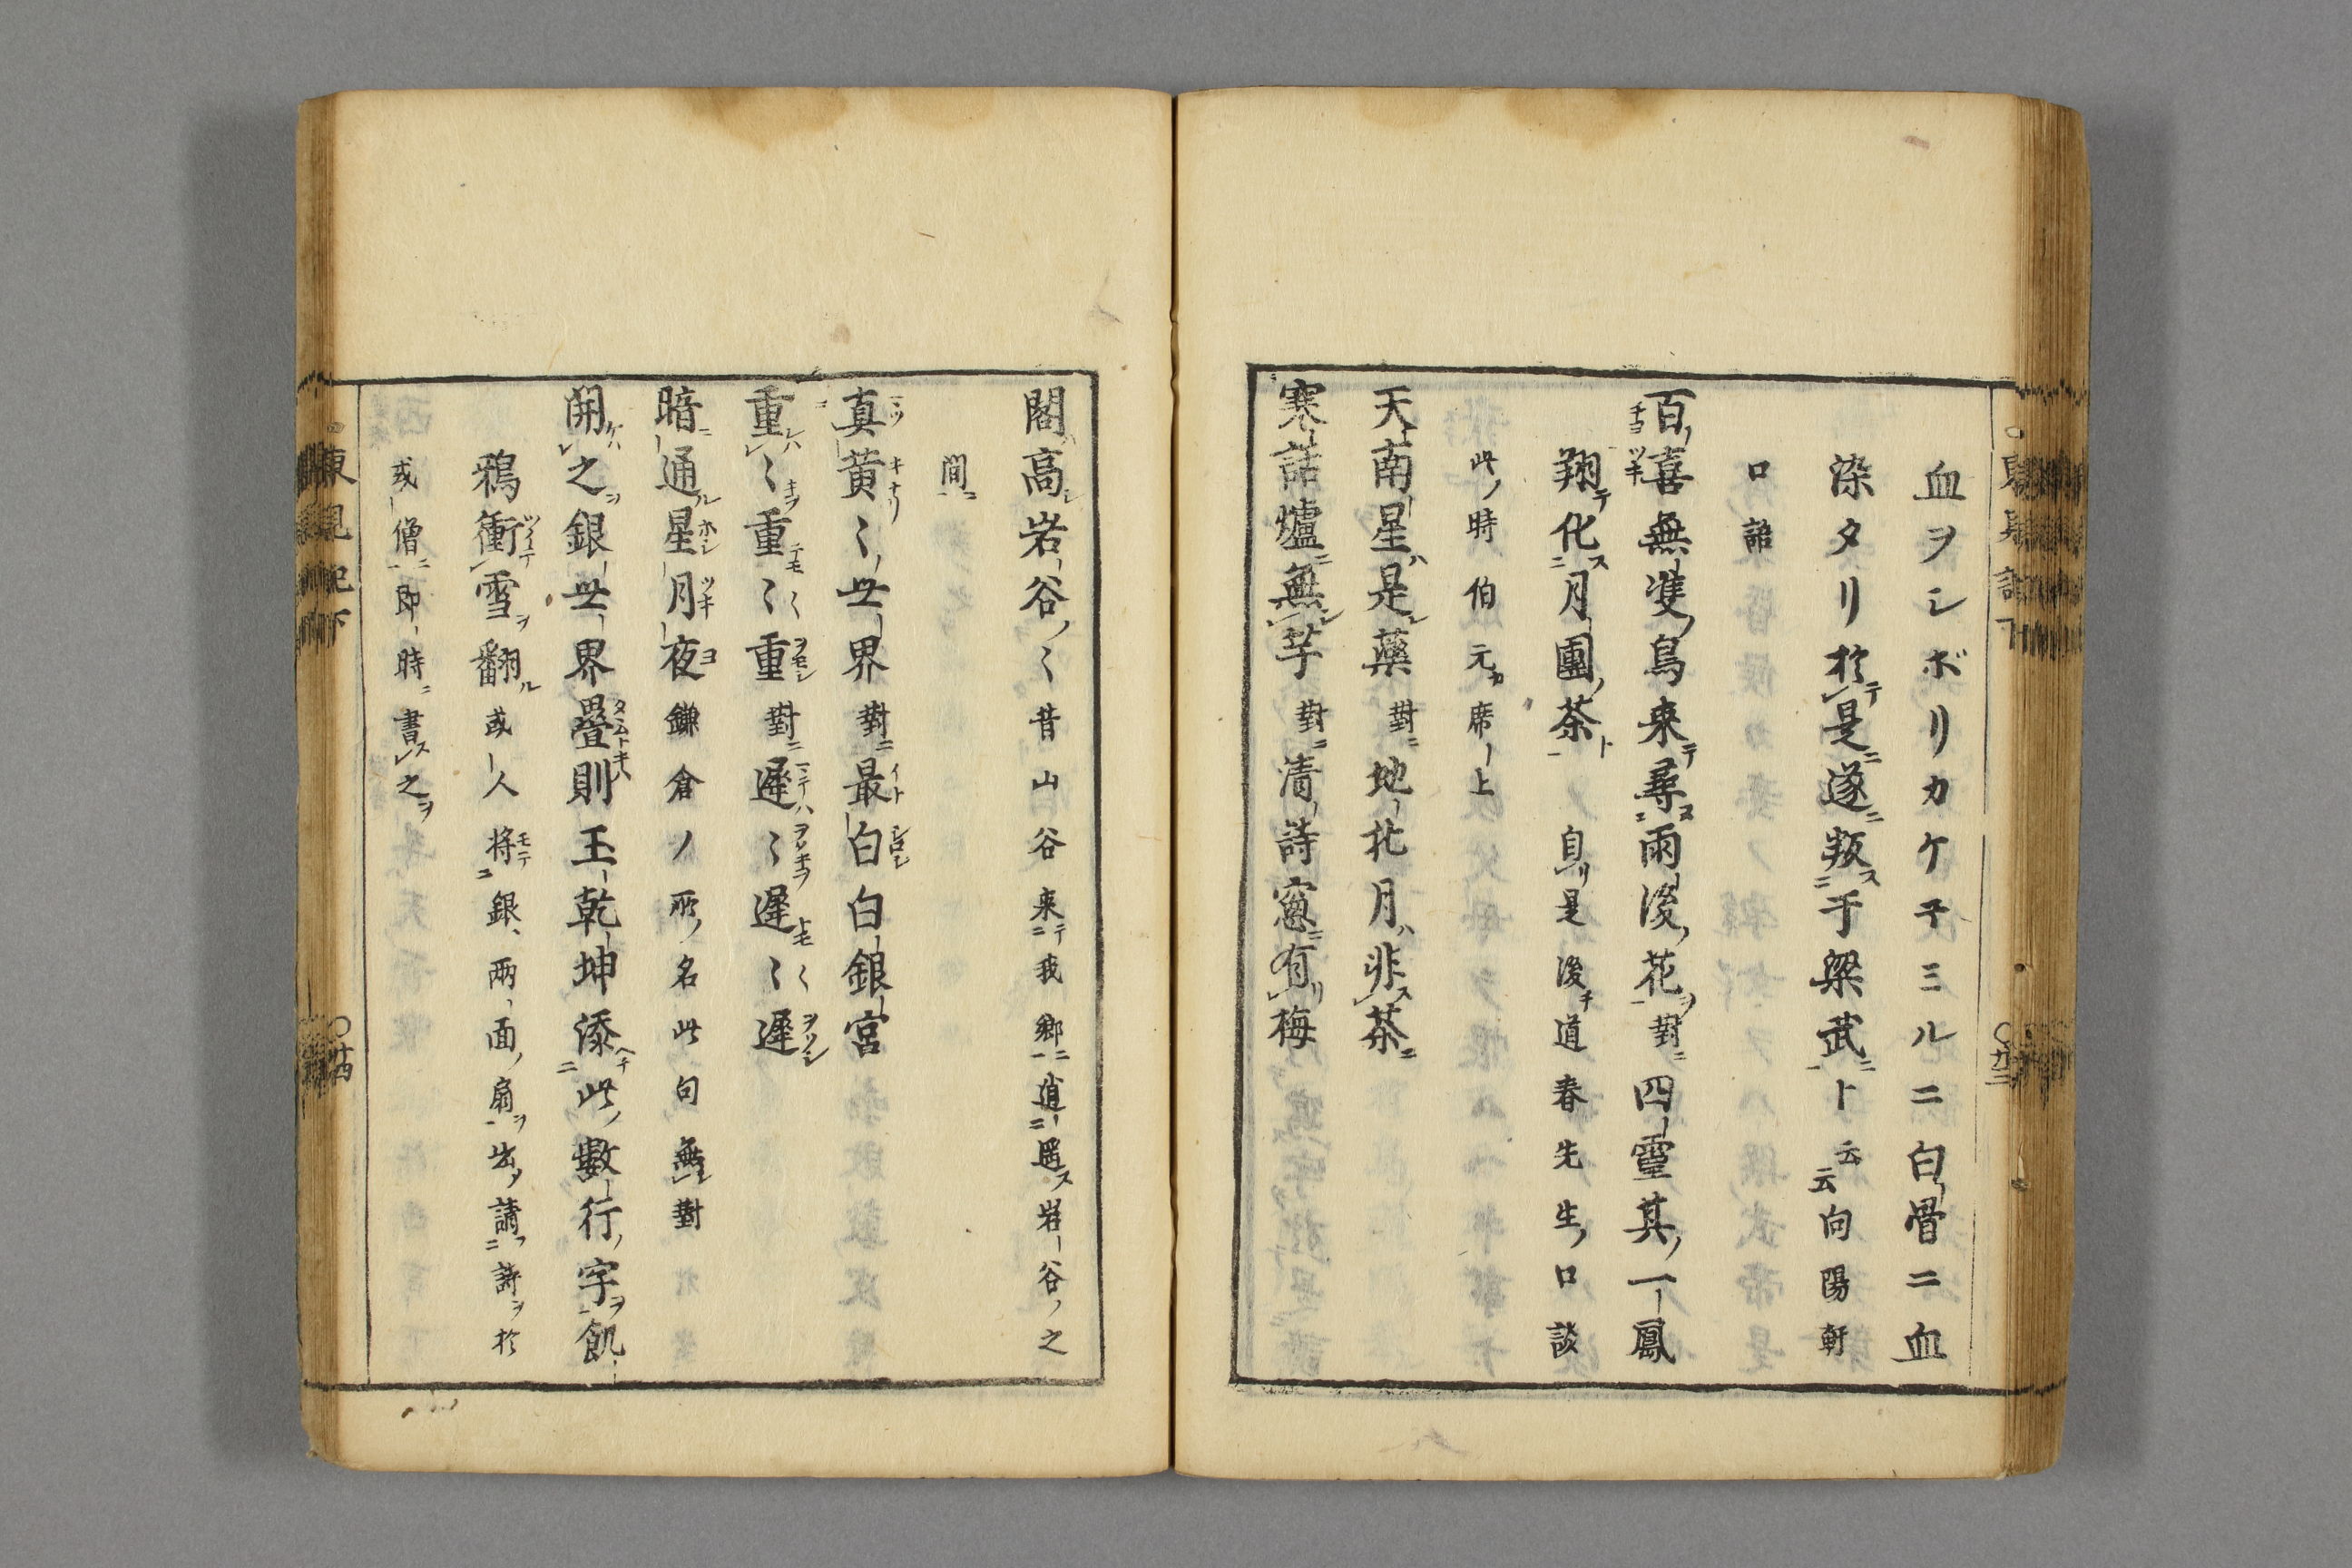 血ヲシボリカケテミルニ白骨ニ血
染タリ於是遂叛于梁武ト云云向陽軒
口語
百喜無隻鳥来尋雨後花對四靈其一鳳
翔化月團茶自是後道春先生口談
此時伯元席上
天南星是藥對地北月非茶
寒話爐無芋對清詩窓有梅
閣高岩谷〻昔山谷来我郷逍遥岩谷之
間
真黄〻世界對最白白銀宮
重〻重〻重對遲〻遲〻遲
暗通星月夜鎌倉ノ所名此句無對
開之銀世界疊則玉乾坤添此數行字飢
鴉衝雪翻或人将銀両面扇出請詩於
或僧即時書之
東見記下